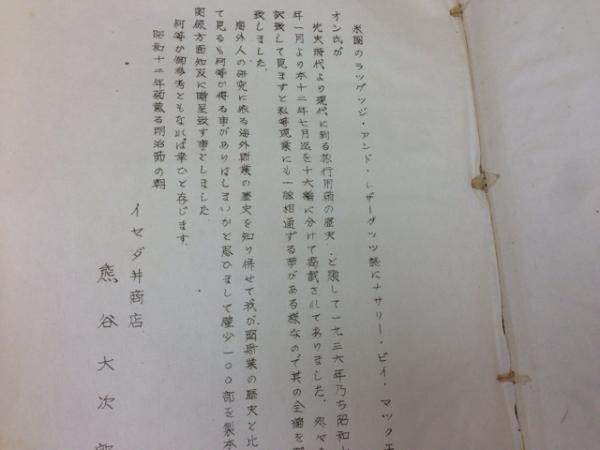 米国のラツゲツジ・アンド・レザーグツツ誌にナサリー・ビイ・マツクエ
オン氏が
先史時代より現代に到る旅行用鞄の歴史 と題して一九三六年乃ち昭和十
年一月より本十二年七月迄を十六編に分けて掲載されてありました、処々
訳致して見ますと私等現業にも一脈相通ずる事がある様なので其の全編を
致しました
海外人の研究に依る海外斯業の歴史を知り併せて我が国斯業の歴史と比
て見るも何等か得る事がありはしまいかと思ひまして僅少一〇〇部を製本
関係方面知友に贈呈致す事としました
何等か御参考ともなれば幸ひと存じます
昭和十二年菊薫る明治節の朝
イセダ井商店
熊谷大次郎